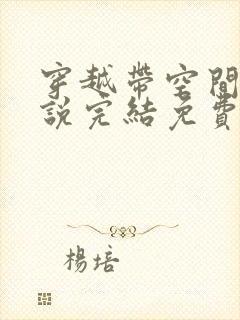 穿越帶空間
說完結免費
楊培